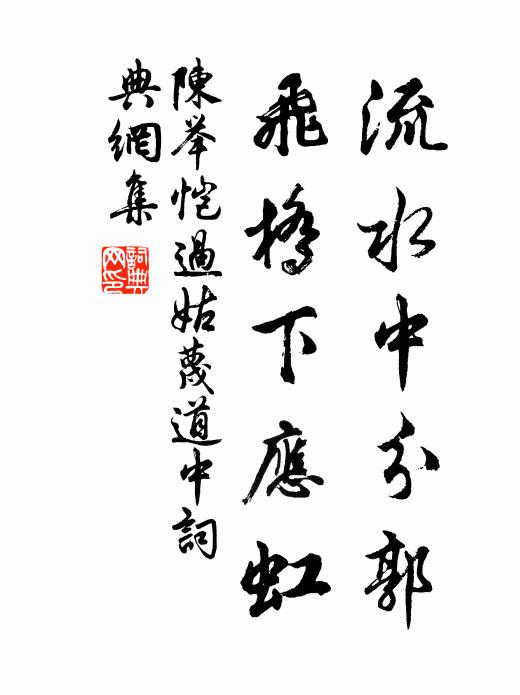 流水中分郭
飛橋下應虹
陳舉愷過姑蔑道中詞
典網集
詞典網印